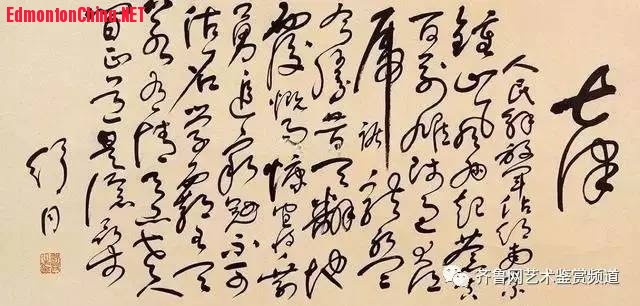 EdmontonChina.NET
七律
人民解放军占领南京
鍾山风雨起苍黄
百万雄师过大江
虎踞龙盘
今胜昔天翻地
覆慨而慷宜将剩
勇追穷寇不可
沽名学霸王天
若有情天亦老人
间正道是沧桑
舒同
齐鲁网艺术鉴赏频道